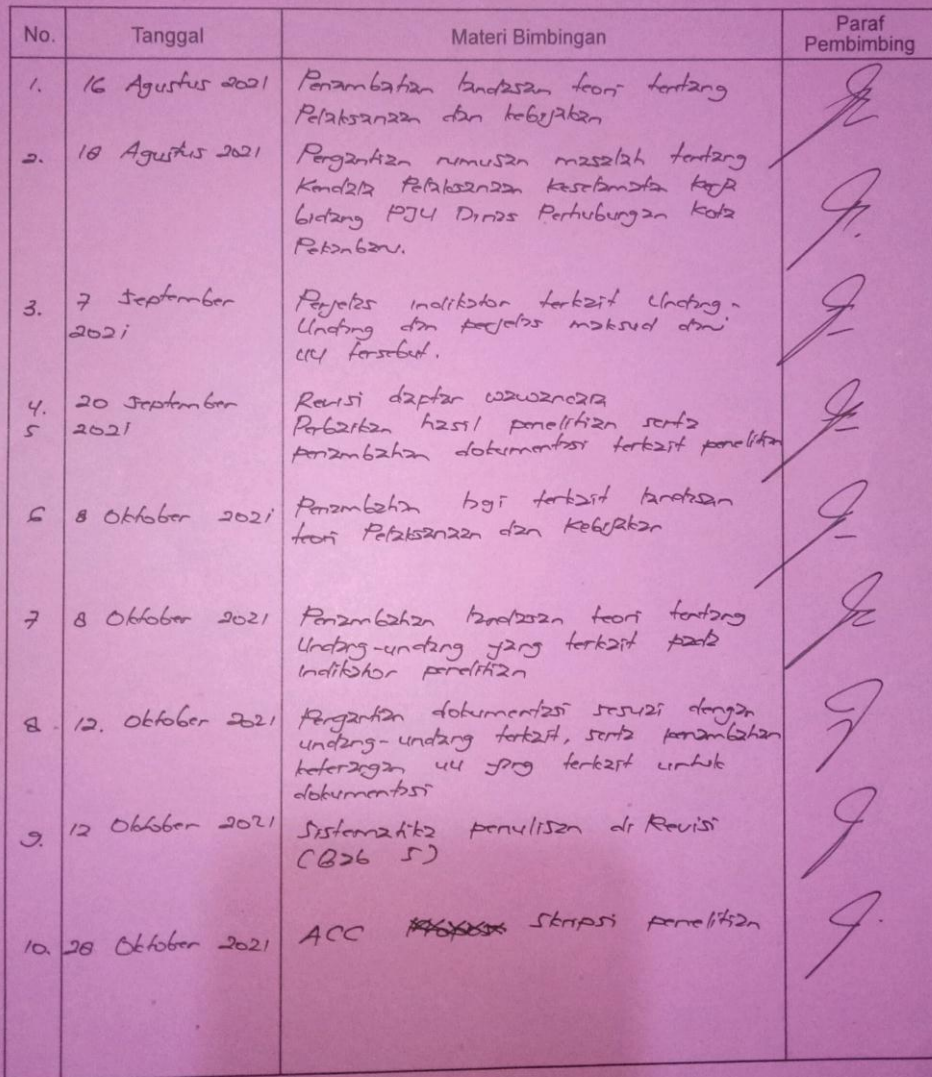 No. Tanggal Materi Bimbingan Paraf Pembimbing
1. 16 Agustus 2021 Penambahan landasan teori tentang
Pelaksanaan dan kebijakan
2. 18 Agustus 2021 Pergantian rumusan masalah tentang
Kendala Pelaksanaan Keselamatan kerja
bidang PJU Dinas Perhubungan Kota
Pekanbaru.
3. 7 September Perjelas indikator terkait Undang-
2021 Undang dan perjelas maksud dari
UU tersebut.
4. 20 September Revisi daptar wawancara
5 2021 Perbaikan hasil penelitian serta
penambahan dokumentasi terkait penelitian
6 8 Oktober 2021 Penambahan lagi terkait landasan
teori Pelaksanaan dan Kebijakan
7 8 Oktober 2021 Penambahan landasan teori tentang
Undang-undang yang terkait pada
indikator penelitian
8. 12. Oktober 2021 Pergantian dokumentasi sesuai dengan
undang-undang terkait, serta penambahan
keterangan UU yang terkait untuk
dokumentasi
9. 12 Oktober 2021 Sistematika penulisan di Revisi
(Bab 5)
10. 28 Oktober 2021 ACC Skripsi penelitian